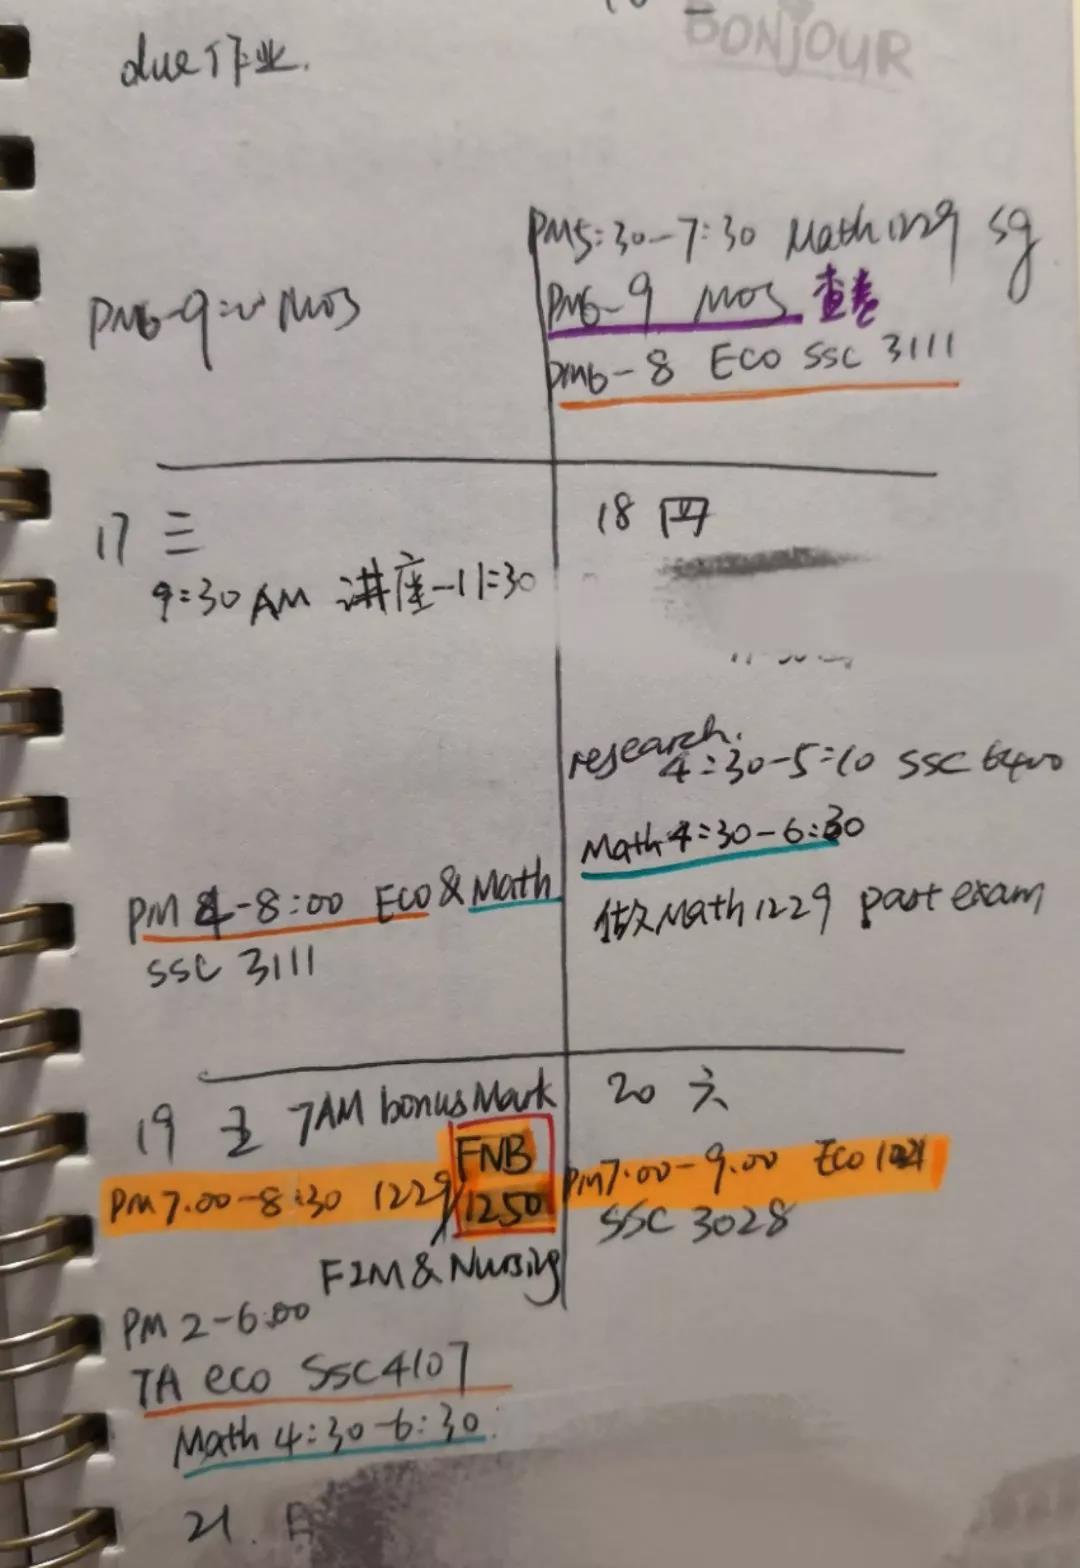 BONJOUR
due作业.
PM6-9:00 MOS
PM5:30-7:30 Math1229 sg
PM6-9 MOS 查卷
PM6-8 ECO SSC 3111
17 三
9:30AM 讲座-11:30
PM 4-8:00 Eco & Math
SSC 3111
18 四
research.
4:30-5:10 SSC 6400
Math 4:30-6:30
做Math1229 past exam
19 五 7AM bonus Mark
PM7.00-8:30 1229
FNB
1250
FIM & Nursing
PM 2-6.00
TA eco SSC4107
Math 4:30-6:30
20 六
PM7.00-9.00 Eco 1021
SSC 3028
21. 日